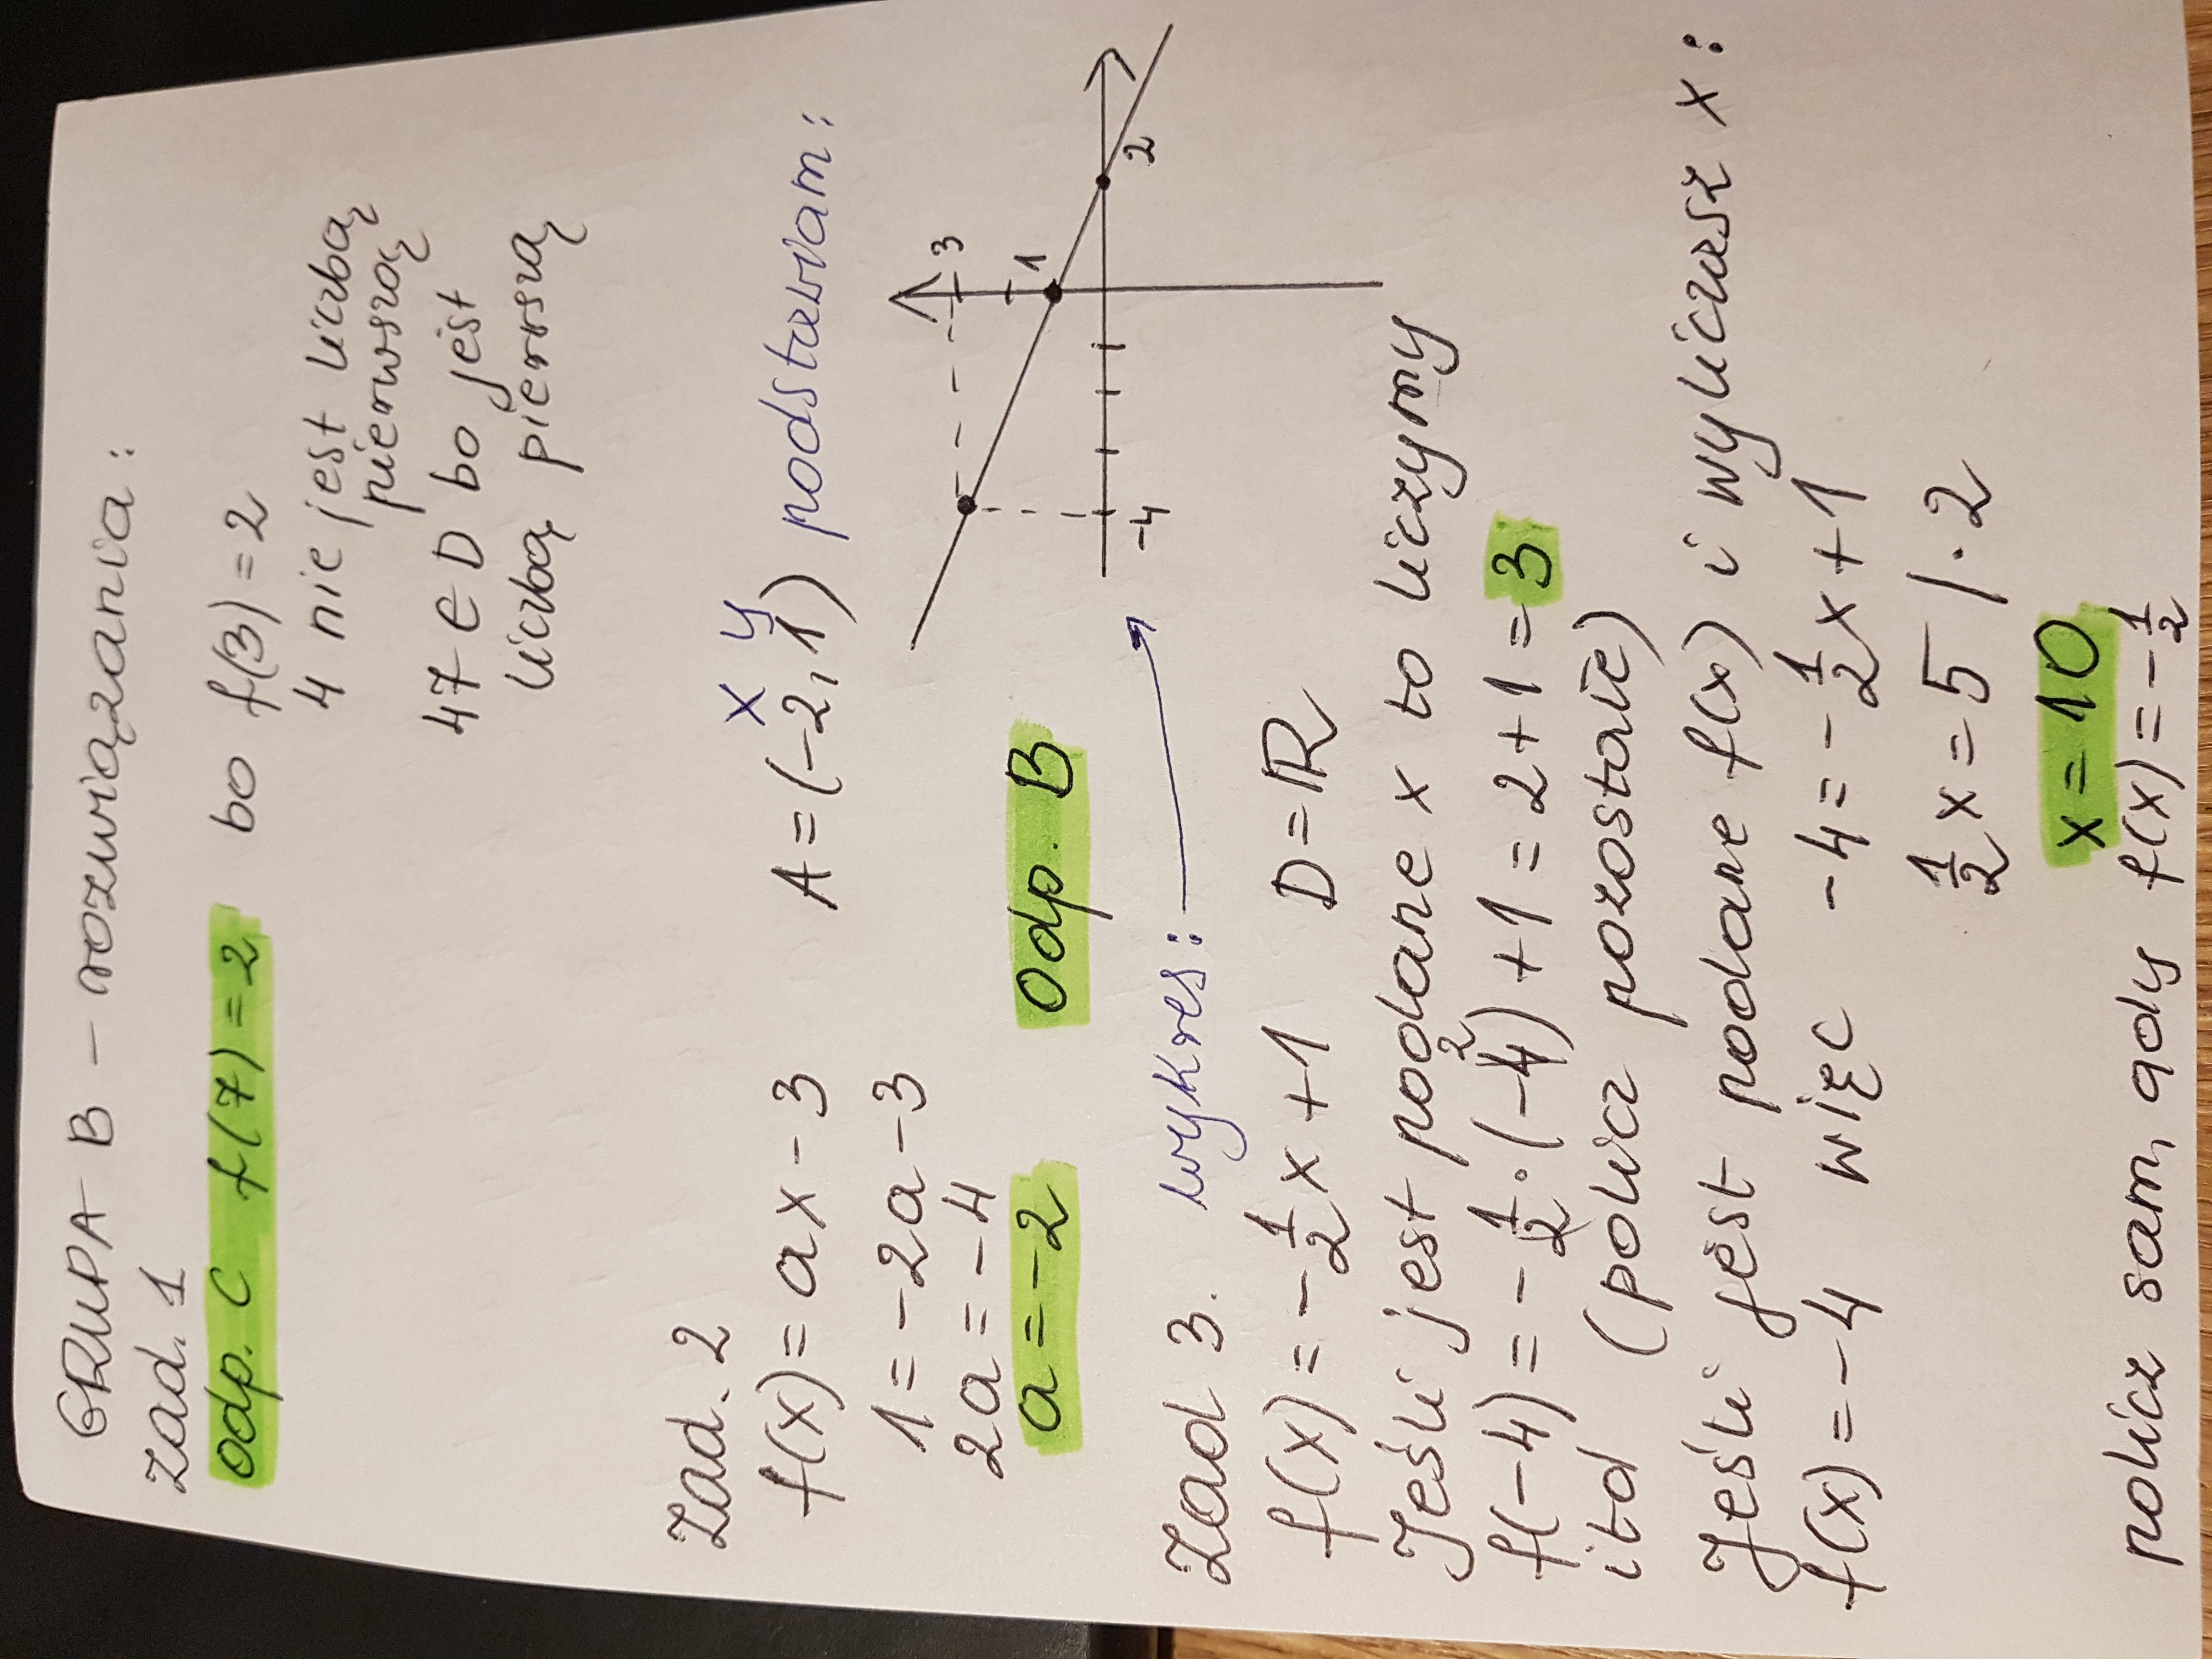 GRUPA B – rozwiązania:
zad. 1
odp. C f(7) = 2 bo f(3) = 2
4 nie jest liczbą
pierwszą
47 e D bo jest
liczbą pierwszą
Zad. 2 x y
f(x) = ax - 3 A = (-2, 1) podstawiam:
1 = -2a - 3
2a = -4
a = -2 odp. B
3
1
2
-4
Zad 3. wykres:
f(x) = -1/2 x + 1 D = ℝ
Jeśli jest podane x to liczymy
f(-4) = -1/2 · (-4) + 1 = 2 + 1 = 3
2
itd (policz pozostałe)
Jeśli jest podane f(x) i wyliczasz x:
f(x) = -4 więc -4 = -1/2 x + 1
1/2 x = 5 / · 2
x = 10
policz sam, gdy f(x) = -1/2